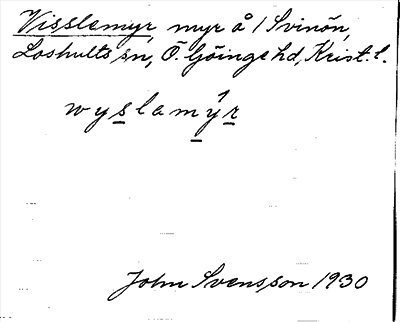 Visslemyr, myr å 1 Svinön,
Loshults sn, Ö. Göinge hd, Krist. l.
wyslamýr
John Svensson 1930